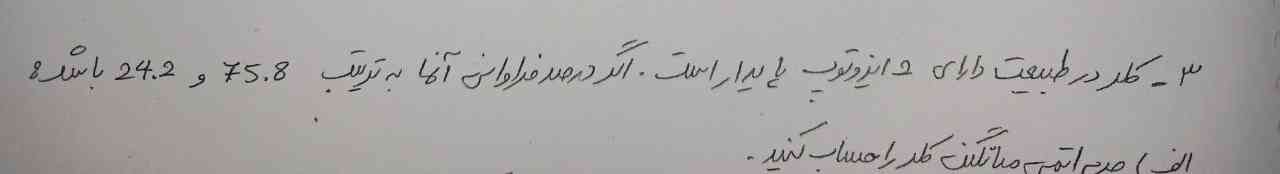 ۳ - کلر در طبیعت دارای 2 ایزوتوپ پایدار است. اگر درصد فراوانی آنها به ترتیب 75.8 و 24.2 باشد:
الف) جرم اتمی میانگین کلر را حساب کنید.